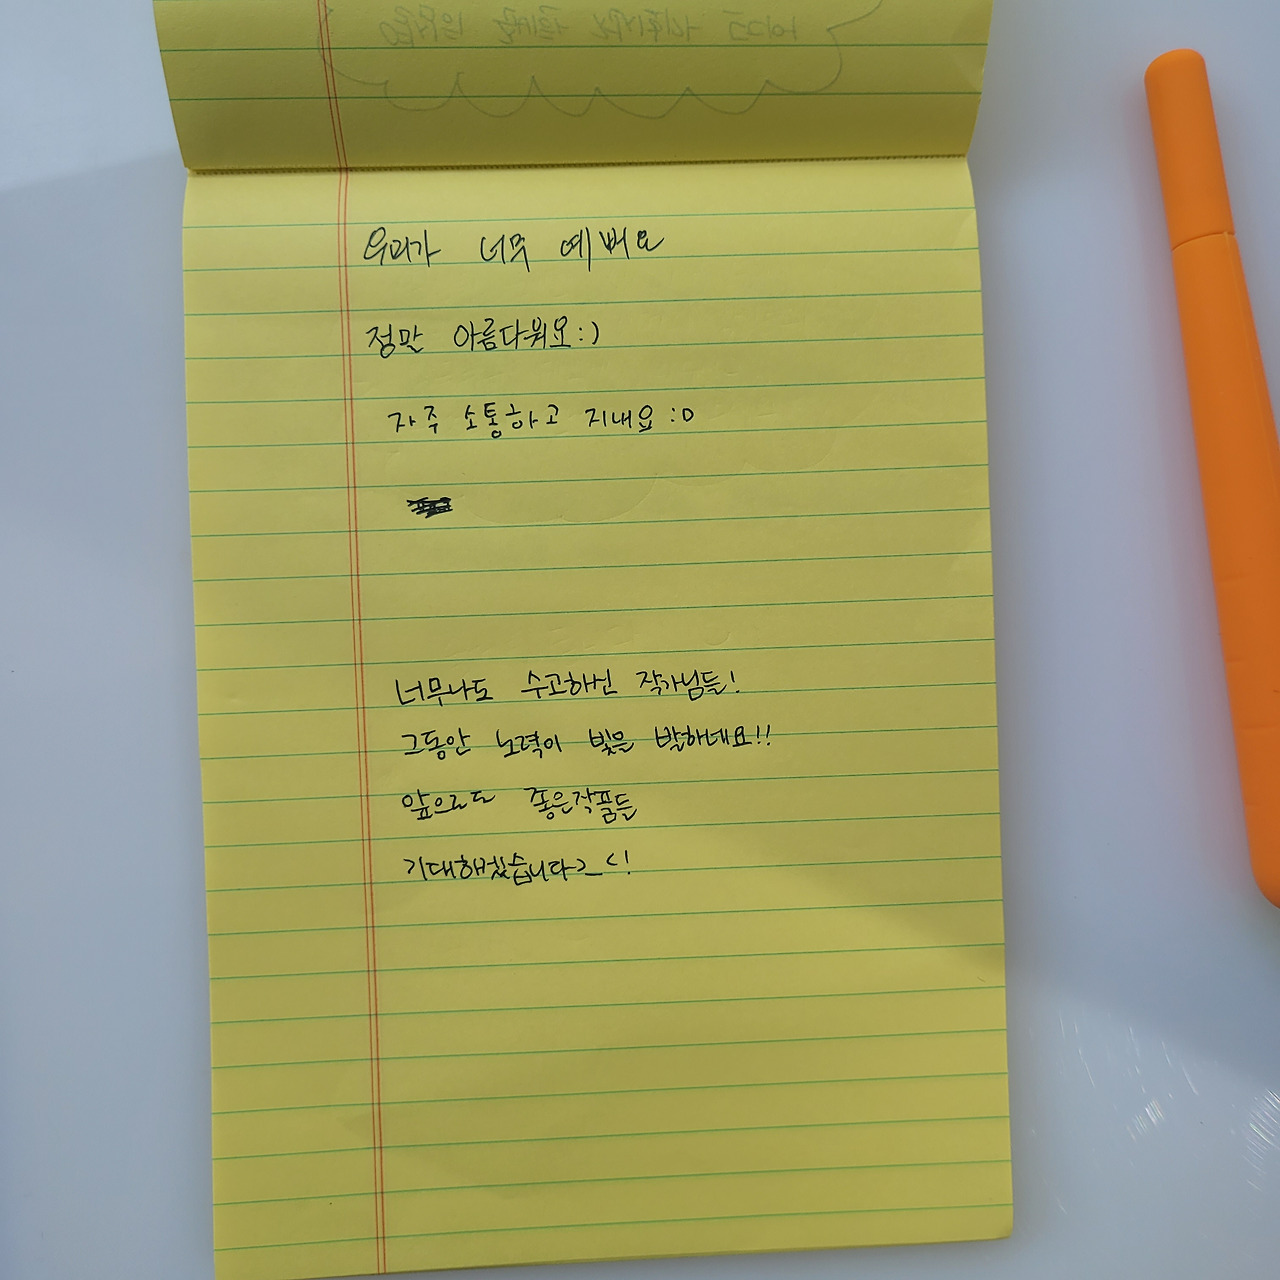 우리가 너무 예뻐요
정말 아름다워요:)
자주 소통하고 지내요 :D
너무나도 수고하신 작가님들!
그동안 노력이 빛을 발하네요!!
앞으로도 좋은작품들
기대하겠습니다>_<!